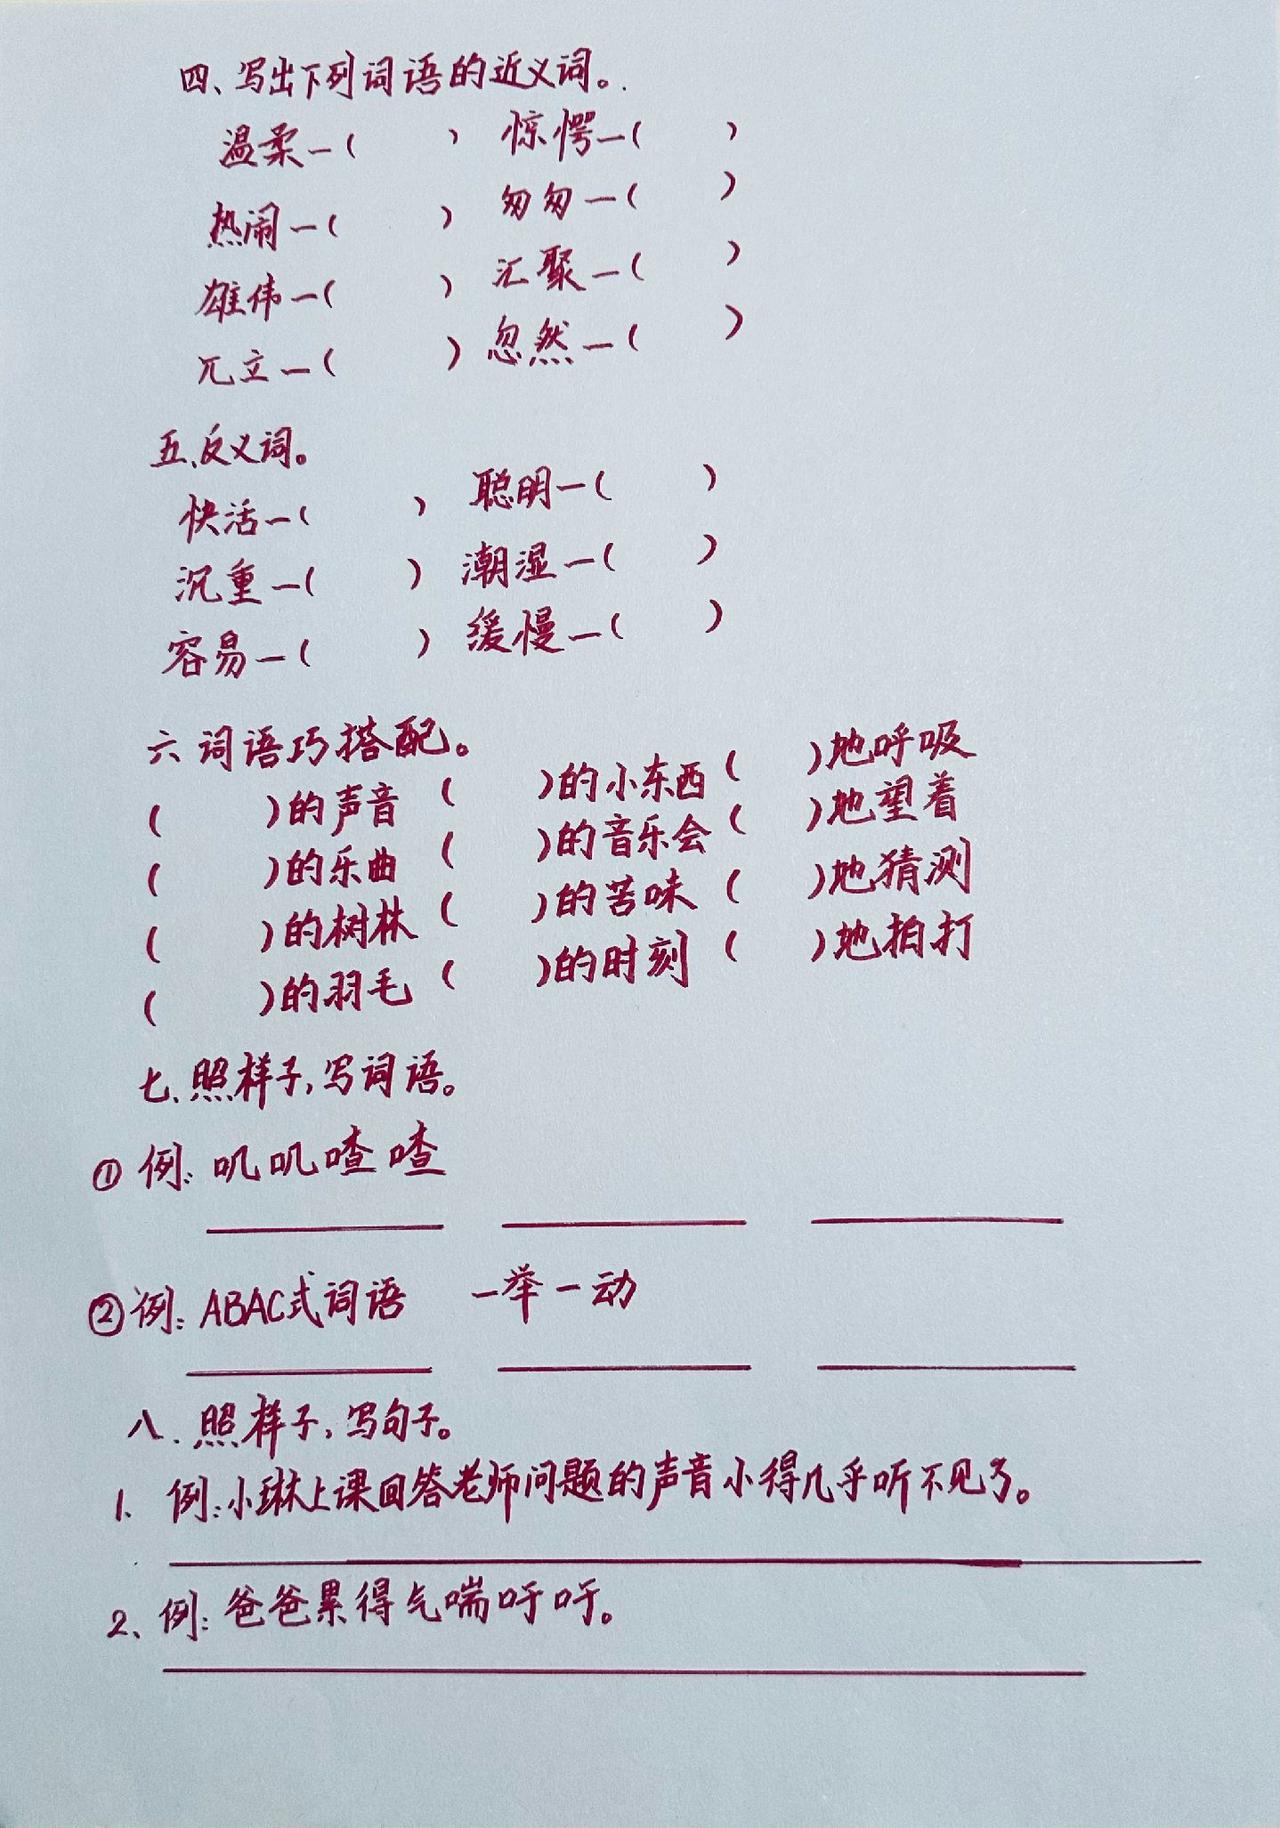 四、写出下列词语的近义词。
温柔—(　　) 惊愕—(　　)
热闹—(　　) 匆匆—(　　)
雄伟—(　　) 汇聚—(　　)
兀立—(　　) 忽然—(　　)
五、反义词。
快活—(　　) 聪明—(　　)
沉重—(　　) 潮湿—(　　)
容易—(　　) 缓慢—(　　)
六 词语巧搭配。
(　　)的声音 (　　)的小东西 (　　)地呼吸
(　　)的乐曲 (　　)的音乐会 (　　)地望着
(　　)的树林 (　　)的苦味 (　　)地猜测
(　　)的羽毛 (　　)的时刻 (　　)地拍打
七、照样子,写词语。
① 例: 叽叽喳喳
② 例: ABAC式词语 一举一动
八、照样子,写句子。
1. 例:小琳上课回答老师问题的声音小得几乎听不见了。
2、例: 爸爸累得气喘吁吁。